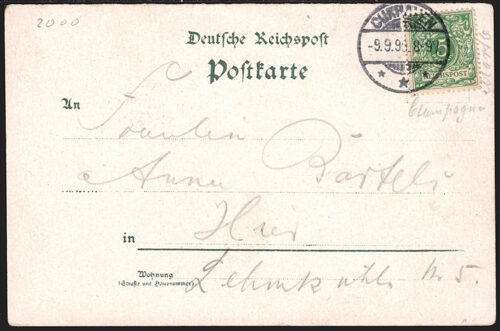 2000
Deutsche Reichspost
Postkarte
CUXHAVEN
-9.9.99. 8-9V.
5
REICHSPOST
An
Fräulein
Anna Bartels
in
Hier
Wohnung
(Straße und Hausnummer)
Lehmkuhle Nr 5.